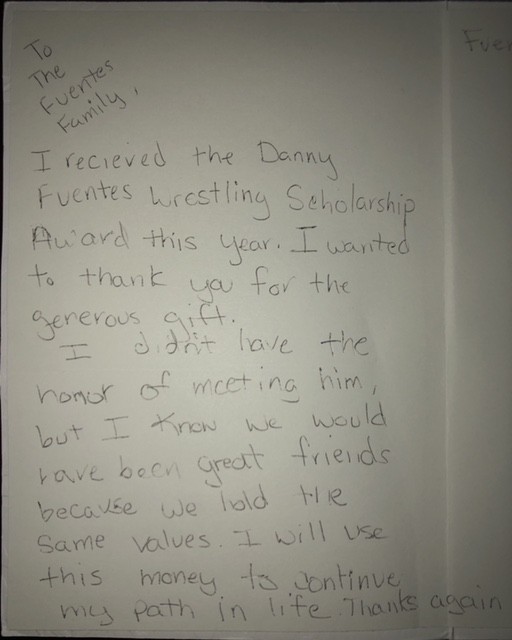 To
The
Fuentes
Family,
I recieved the Danny
Fuentes Wrestling Scholarship
Award this year. I wanted
to thank you for the
generous gift.
I didn't have the
honor of meeting him,
but I know we would
have been great friends
because we hold the
same values. I will use
this money to continue
my path in life. Thanks again